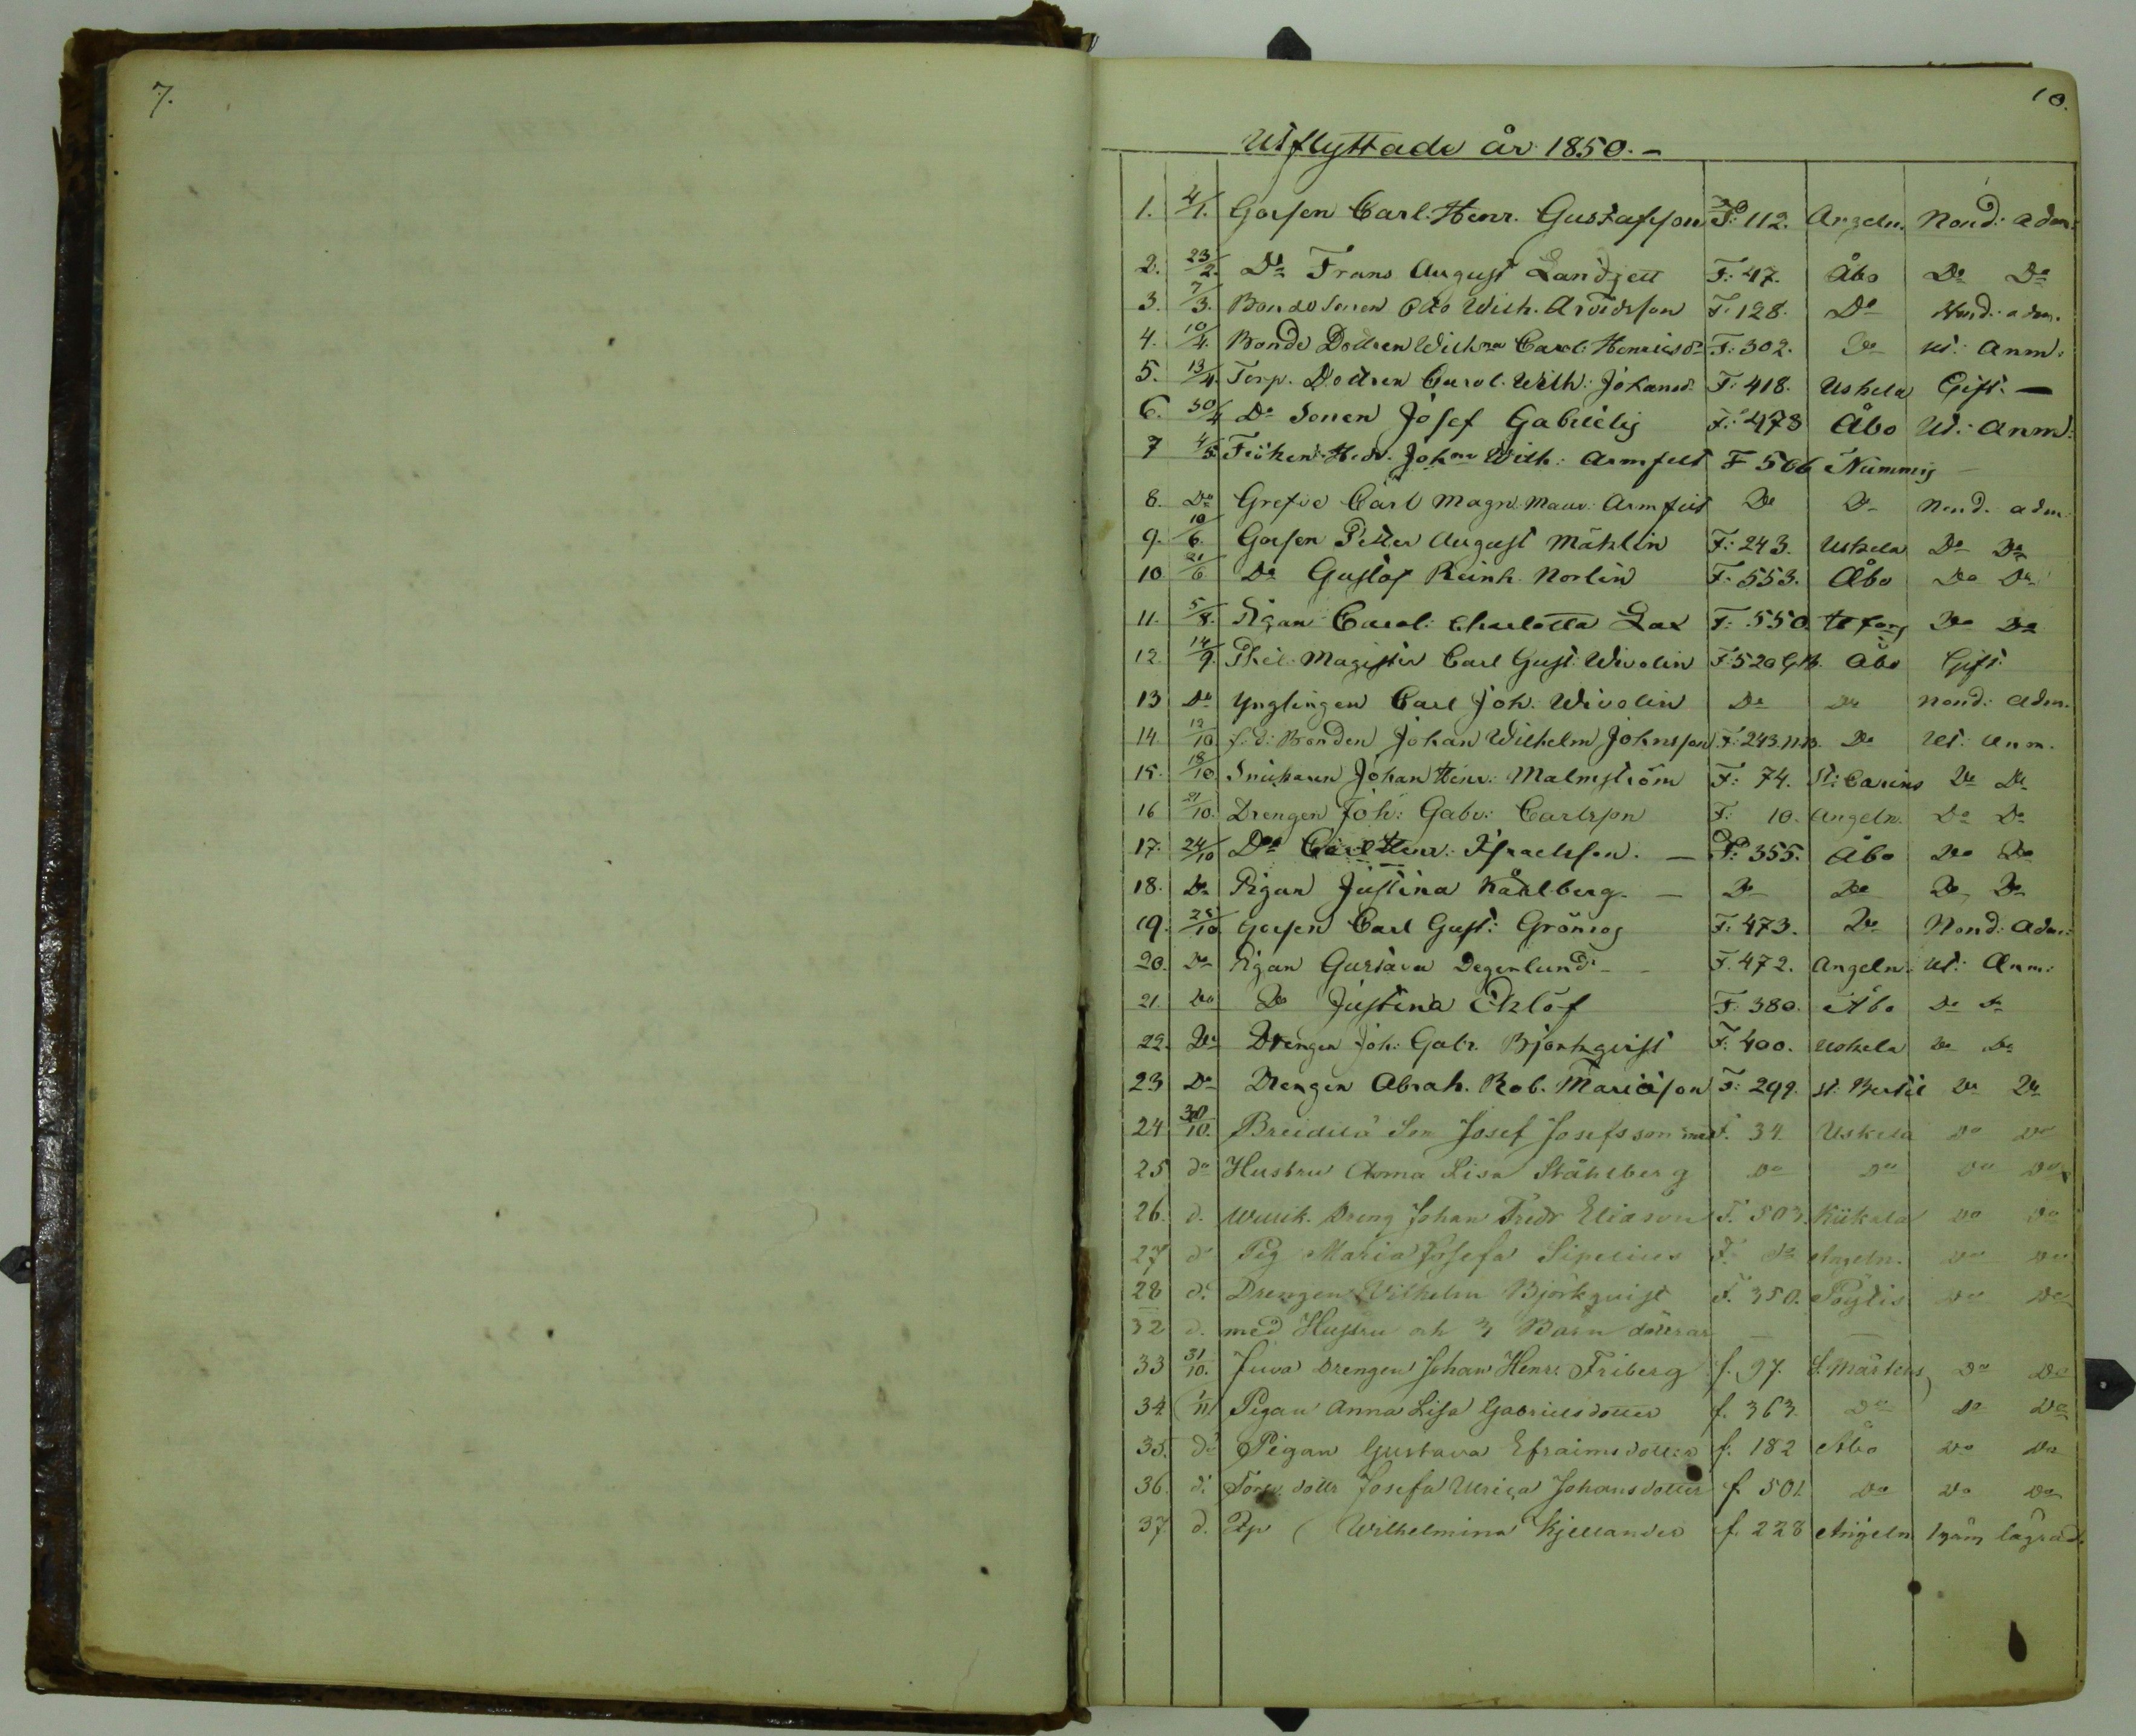 7.
10.
Utflyttade år 1850. -
1. 4/1. Gossen Carl Henr. Gustafsson F: 112. Angeln. Nond: adm:
2. 23/2. Do Frans August Landzett F: 47. Åbo Do Do
3. 7/3. Bonde Sonen Otto Wilh. Arvidsson F. 128. Do Nond: adm.
4. 10/4. Bonde Dottren Wilhna Carol: Henriksdr F: 302. Do ut: Anm:
5. 13/4. Torp. Dottren Carol. Wilh: Johansd. F: 418. Uskela Gift. —
6. 30/4 Do Sonen Josef Gabrielss F: 478 Åbo Ut: Anm:
7 4/5. Fröken Hedv. Johna Wilh: Armfelt F 506 Nummis
8. Do Grefve Carl Magn: Maur: Armfelt Do Do Nond. adm:
9. 10/6. Gossen Petter August Mählin F: 243. Uskela Do Do
10 21/6 Do Gustaf Reinh. Norlin F: 553. Åbo Do Do
11. 5/8. Pigan Carol: Charlotta Lax F: 550. Do Do
12. 14/9. Phil. Magister Carl Gust: Wivolin F: 520 Åbo Gift
13 Do Ynglingen Carl Joh. Wivolin Do Do Nond: Adm.
14. 12/10. f: d: Bonden Johan Wilhelm Johnsson F: 243. Do Ut: Anm.
15. 18/10 Snickaren Johan Henr: Malmström F: 74. St: Carins Do Do
16 21/10. Drengen Joh: Gabr: Carlsson F: 10. Angeln. Do Do
17. 24/10 Do Carl Henr: Israelsson. — F: 355. Åbo Do Do
18. Do Pigan Justina Kåhlberg — Do Do Do Do
19. 28/10. Gossen Carl Gust: Grönros F. 473. Do Nond: Adm:
20. Do Pigan Gustava Degerlund F. 472. Angeln. Ut: Anm:
21. Do Do Justina Eklöf F: 380. Åbo Do Do
22. Do Drengen Joh: Gabr. Björkqvist F: 400. Uskela Do Do
23 Do Drengen Abrah. Rob. Mariæson F: 299. St: Bertil Do Do
24 30/10. Son Josef Josefsson med F. 34. Uskela Do Do
25 do Hustru Anna Lisa Ståhlberg Do Do Do Do
26. d. Dreng Johan Fredr Eliasson F. 503. Kiikala Do Do
27 do Pig Maria Josefa Sipelius F. Do Angeln. Do Do
28 d. Drengen Wilhelm Björkqvist F. 350. Pöytis Do Do
32 d. med Hustru och 3 Barn döttrar
33 31/10. Drengen Johan Henr: Friberg f. 97. S. Mårtens Do Do
34. 1/11. Pigan Anna Lisa Gabrielsdotter f. 363. Do Do Do
35. do Pigan Gustava Efraimsdotter f. 182 Åbo Do Do
36. d. Torp. dottr Josefa Ulrica Johansdotter f. 501. Do Do Do
37 d. Wilhelmina Kjellander f. 228 Angeln 1 gång lägrad.